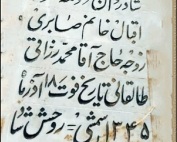 شادروان
اقبال خانم صابری
زوجه حاج آقا محمد رزاقی
طالقانی تاریخ فوت ۱۸ آذرماه
۱۳۴۵ شمسی روحش شاد